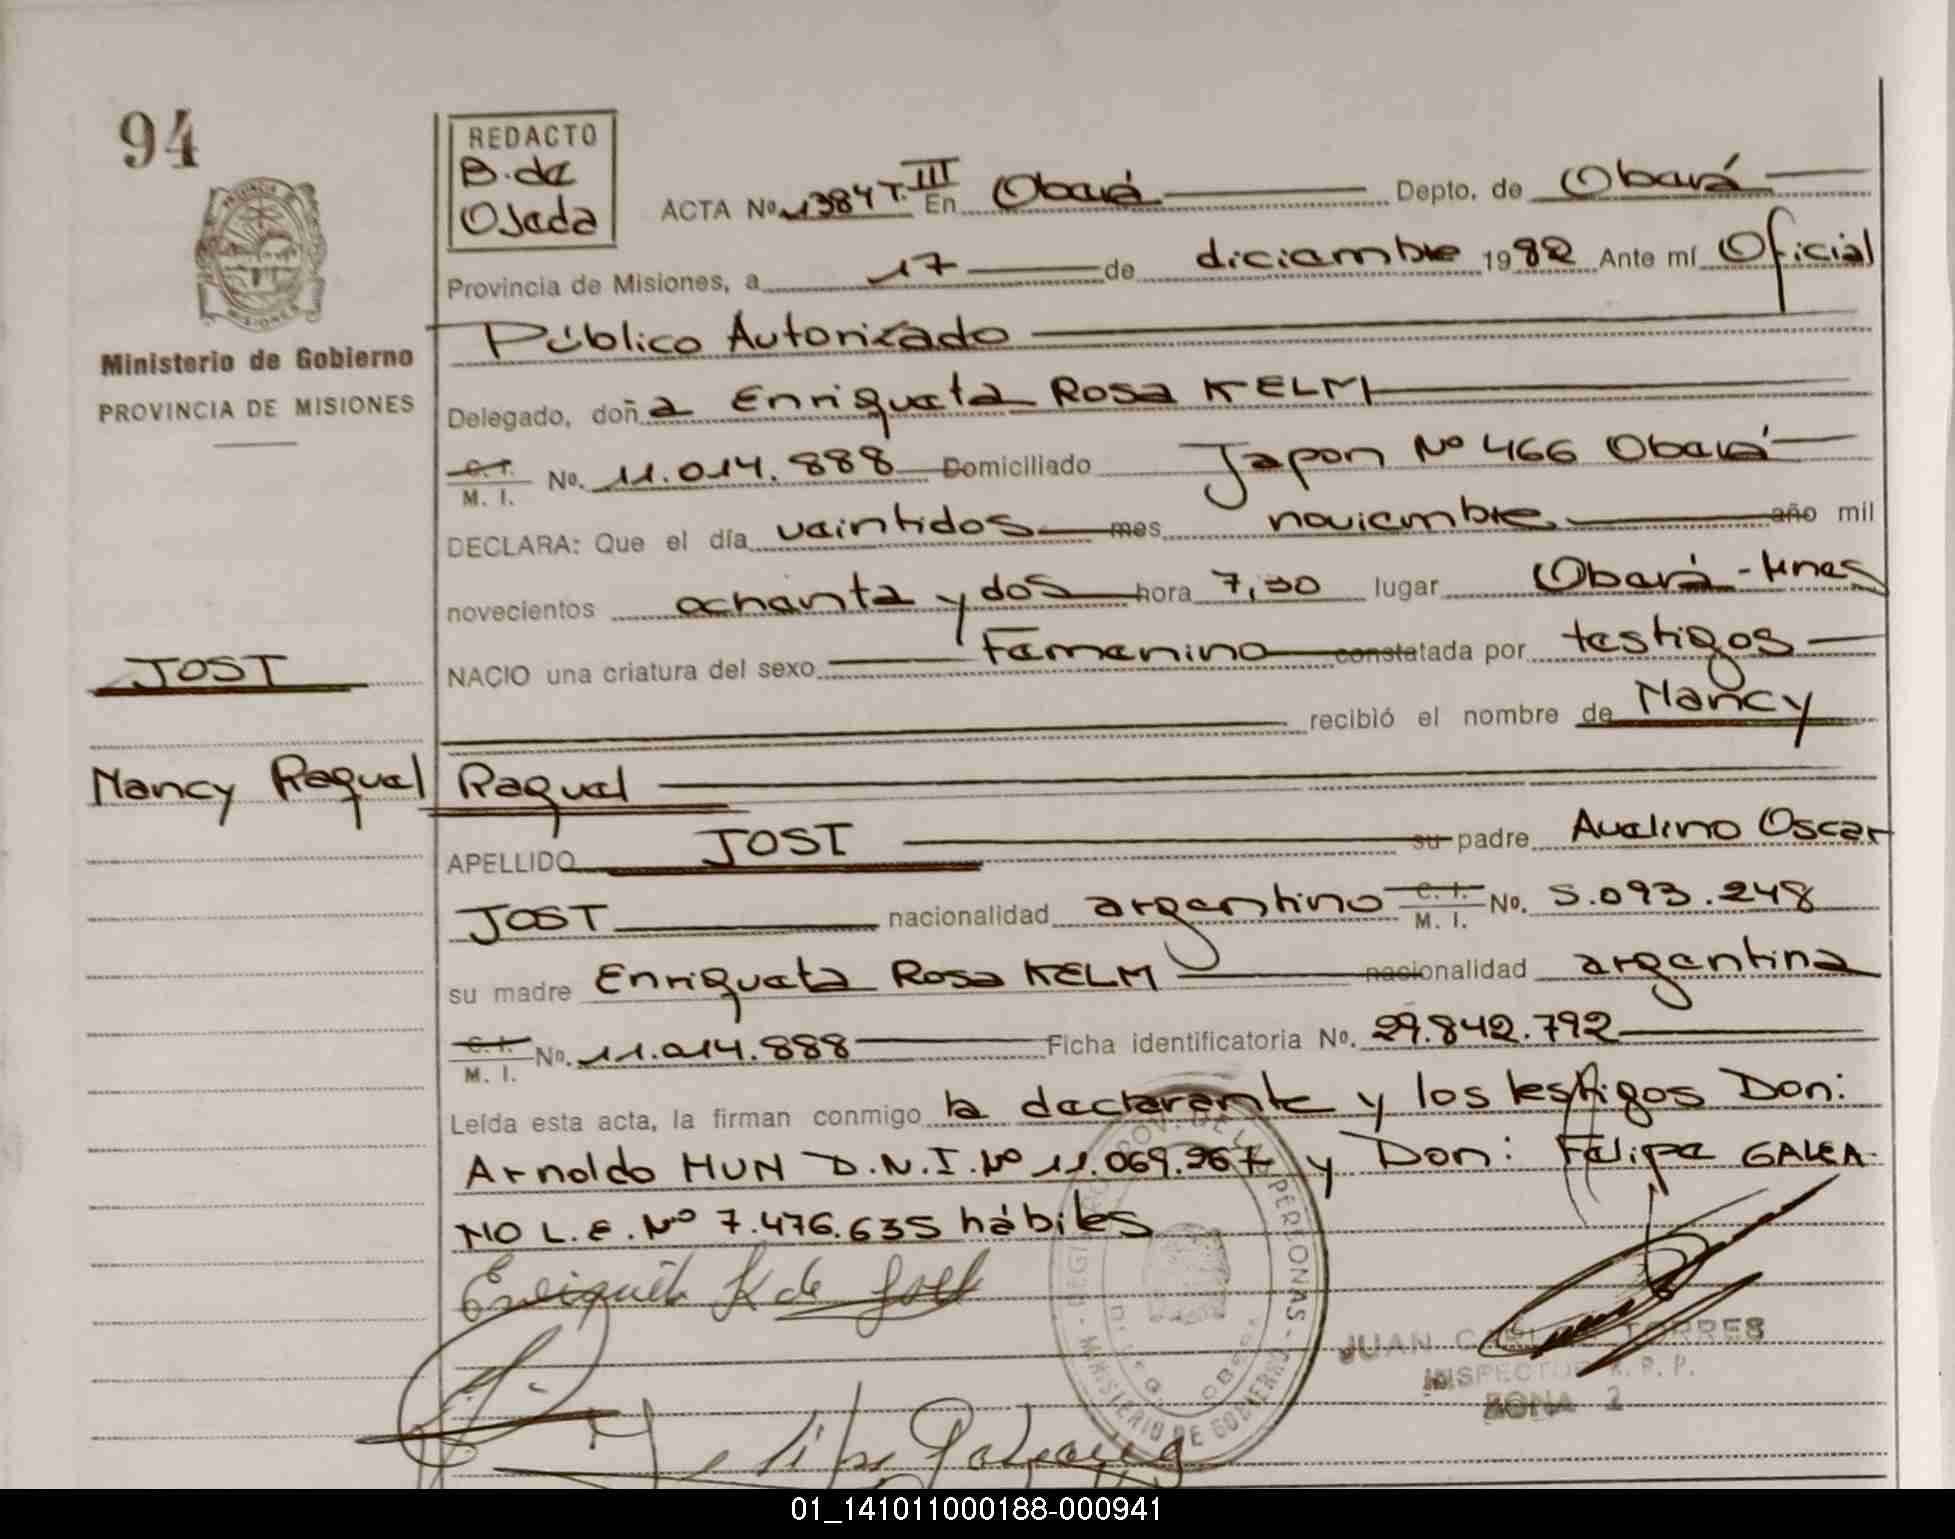 94
REDACTO
B. de
Ojeda
ACTA No. 1384 T. III En Oberá Depto. de Oberá
Provincia de Misiones, a 17 de diciembre 1982 Ante mí Oficial
Público Autorizado
PROVINCIA
MISIONES
Ministerio de Gobierno
PROVINCIA DE MISIONES
Delegado, doña Enriqueta Rosa KELM
C. I.
M. I. No. 11.014.888 Domiciliado Japon Nº 466 Oberá
DECLARA: Que el día veintidos mes noviembre año mil
novecientos ochenta y dos hora 7,30 lugar Oberá - Mnes
NACIO una criatura del sexo Femenino constatada por testigos
recibió el nombre de Nancy
JOST
Nancy Raquel
Raquel
APELLIDO JOST su padre Avelino Oscar
JOST nacionalidad argentino C. I. M. I. No. 5.093.248
su madre Enriqueta Rosa KELM nacionalidad argentina
C. I.
M. I. No. 11.014.888 Ficha identificatoria No. 29.842.792
Leída esta acta, la firman conmigo la declarante y los testigos Don:
Arnoldo HUN D.N.I. Nº 11.069.967 y Don: Felipe GALEA-
NO L.E. Nº 7.476.635 hábiles
Enriqueta K de Jost
PERSONAS - MINISTERIO DE GOBIERNO
JUAN CARLOS TORRES
INSPECTOR R. P. P.
ZONA 2
Felipe Galeano
01_141011000188-000941